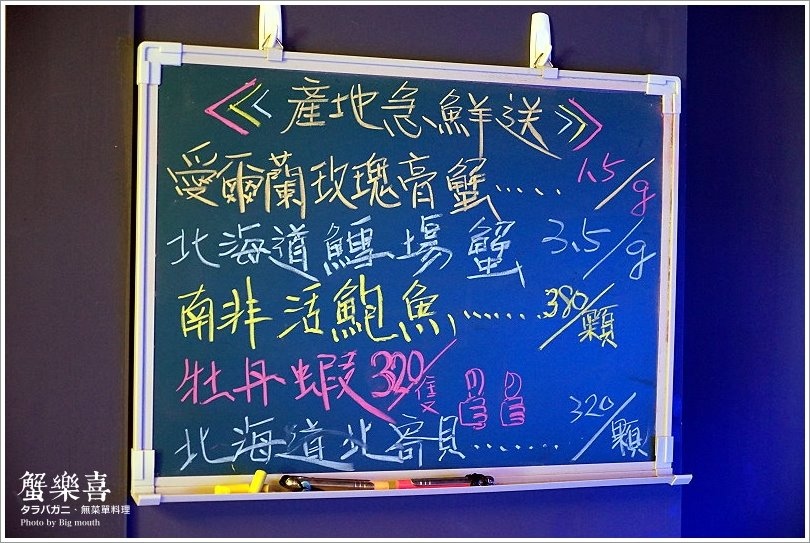 《《產地急鮮送》》
愛爾蘭玫瑰膏蟹..... 1.5/g
北海道鱈場蟹 3.5/g
南非活鮑魚....... 380/顆
牡丹蝦 320/隻
北海道北寄貝....... 320/顆
蟹樂喜
タラバガニ・無菜單料理
Photo by Big mouth